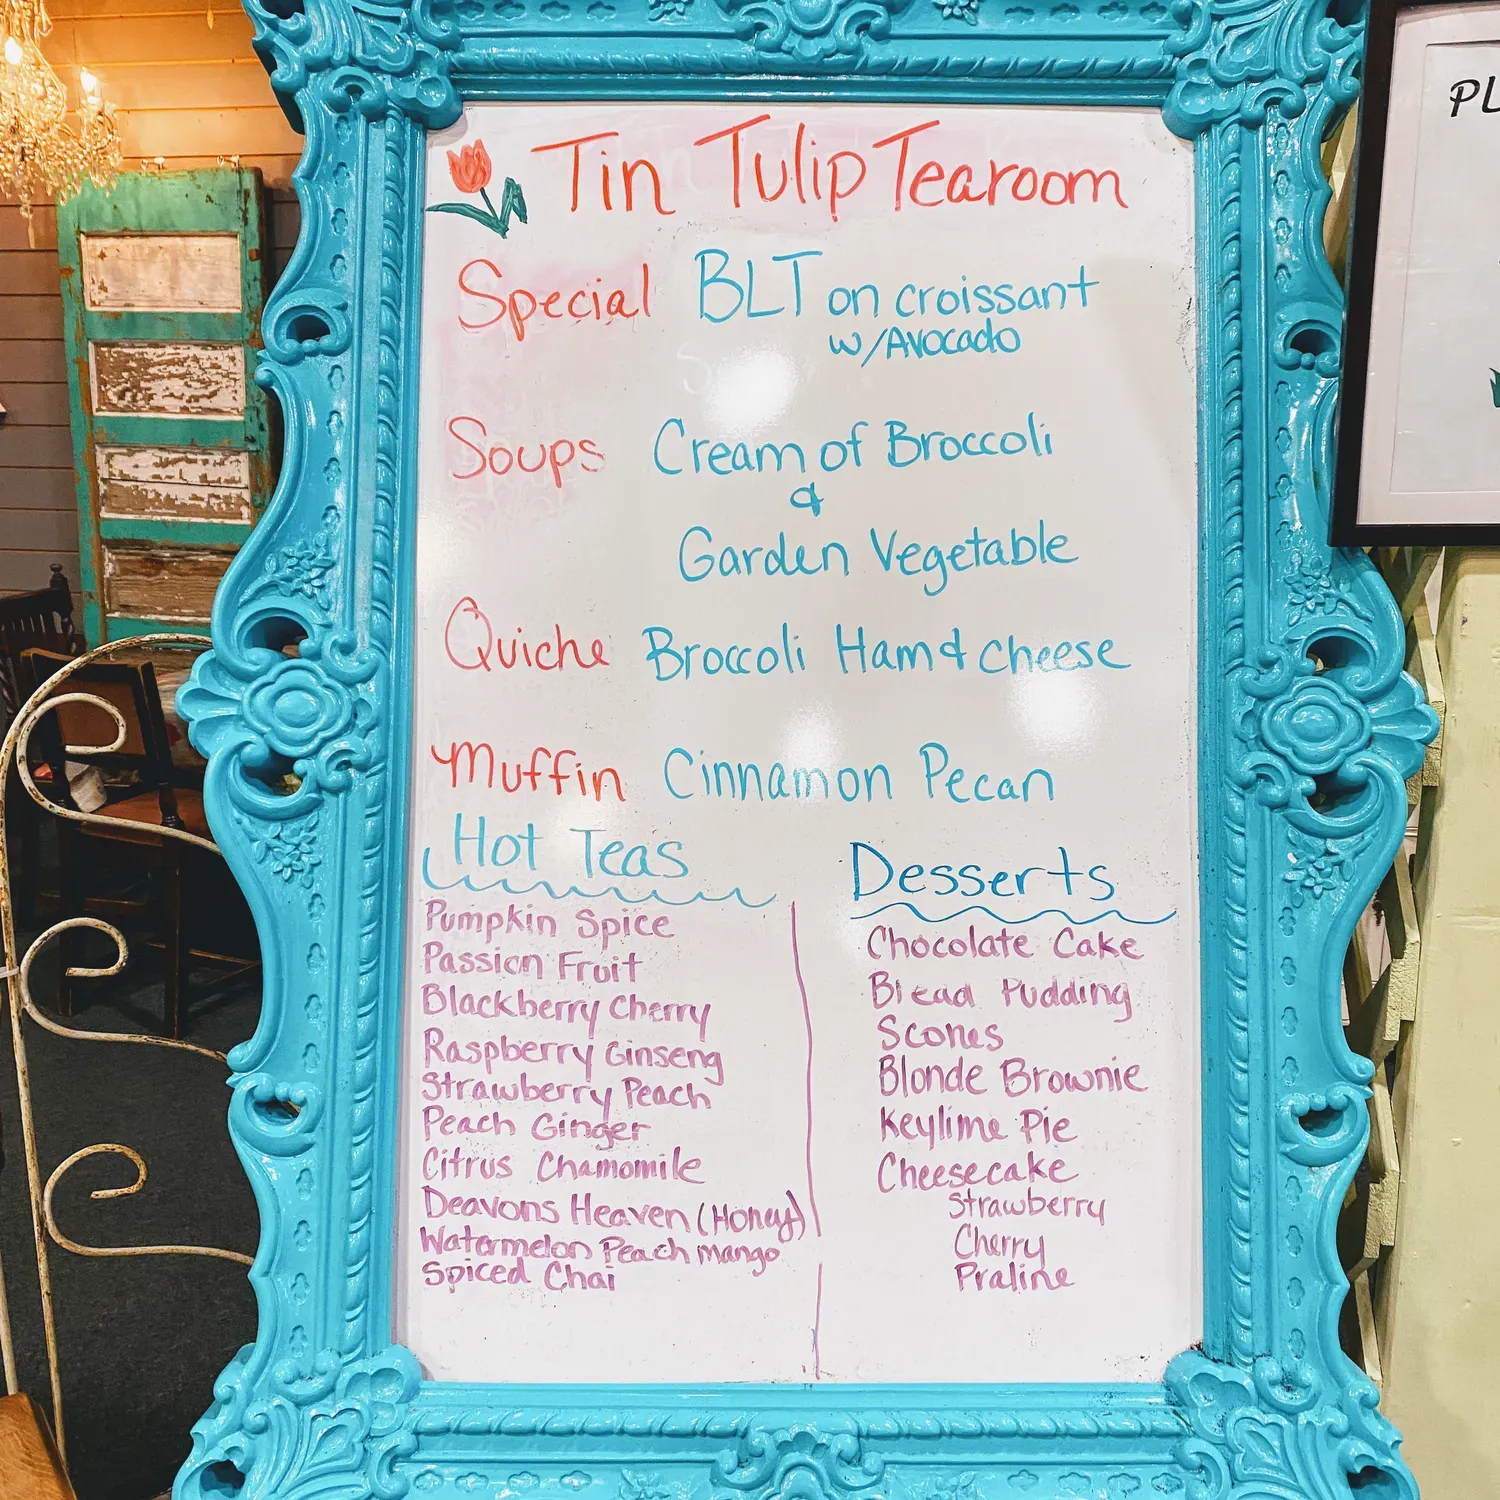 Tin Tulip Tearoom
Special BLT on croissant
w/Avocado
Soups Cream of Broccoli
&
Garden Vegetable
Quiche Broccoli Ham & cheese
Muffin Cinnamon Pecan
Hot Teas
Pumpkin Spice
Passion Fruit
Blackberry Cherry
Raspberry Ginseng
Strawberry Peach
Peach Ginger
Citrus Chamomile
Deavons Heaven (Honey)
Watermelon Peach mango
Spiced Chai
Desserts
Chocolate Cake
Bread Pudding
Scones
Blonde Brownie
Keylime Pie
Cheesecake
Strawberry
Cherry
Praline
PL